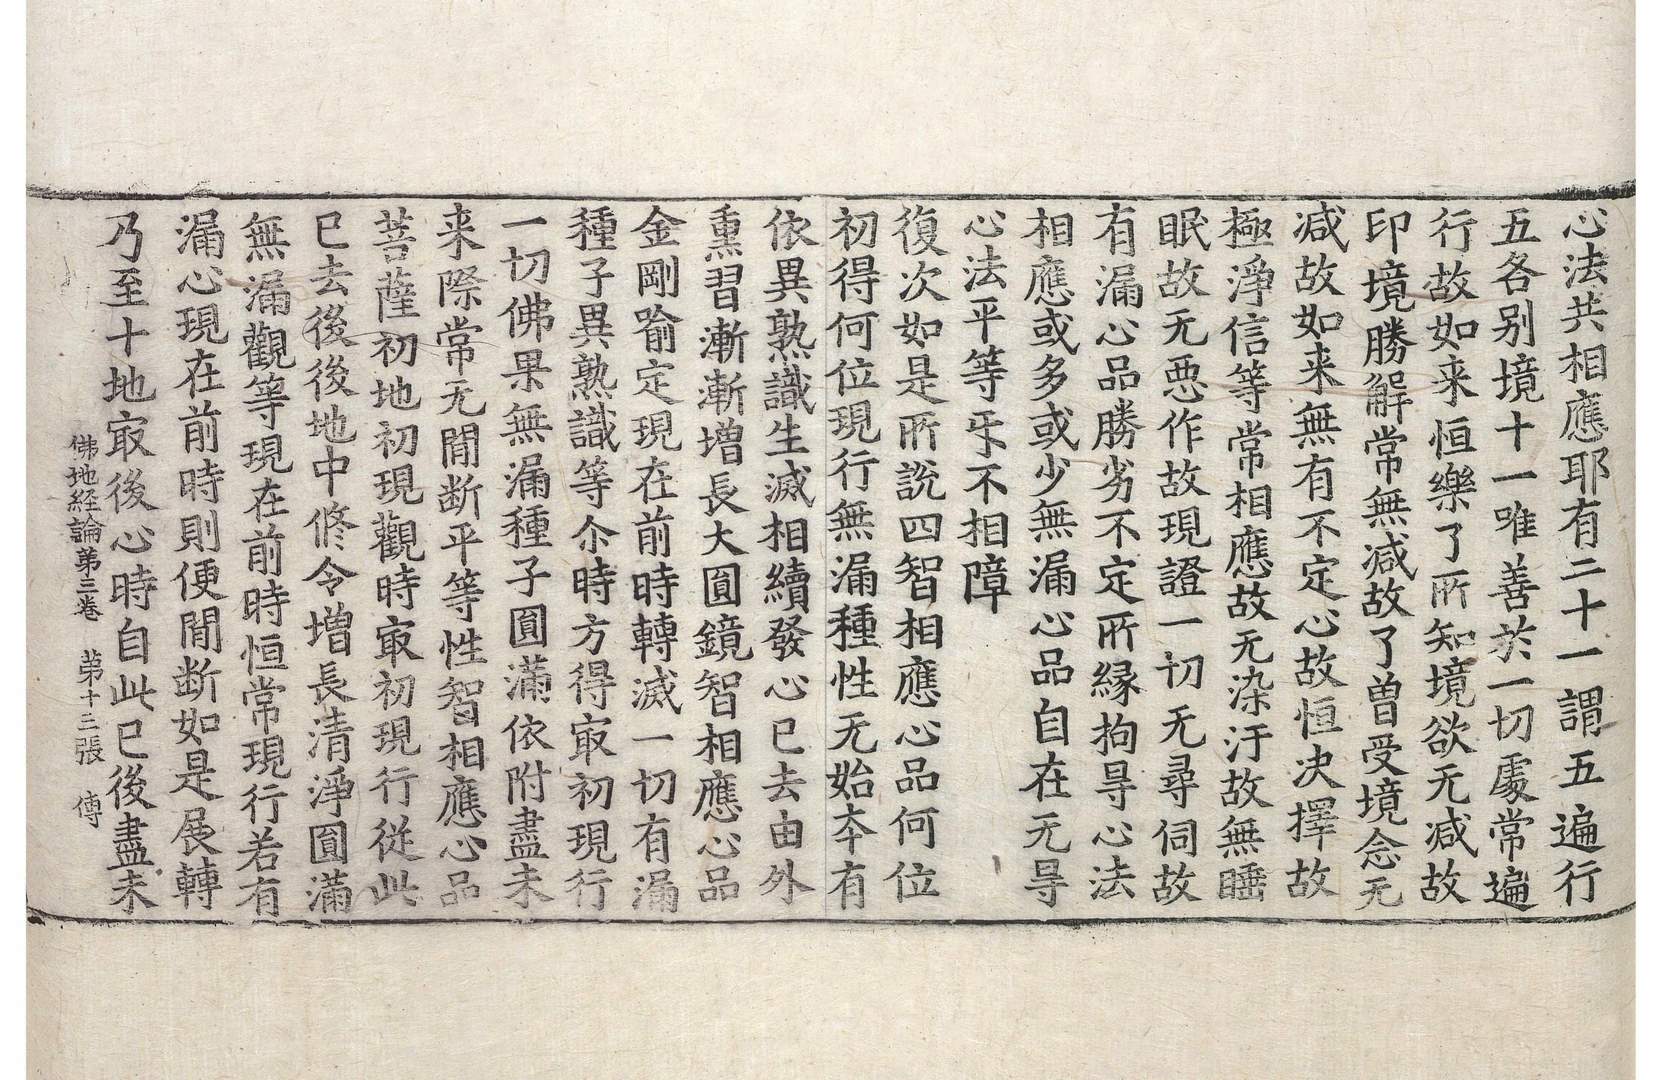 心法共相應耶有二十一謂五遍行
五各别境十一唯善於一切處常遍
行故如来恒樂了所知境欲无減故
印境勝解常無減故了曽受境念无
減故如来無有不定心故恒决擇故
極淨信等常相應故无染汙故無睡
眠故无惡作故現證一切无尋伺故
有漏心品勝劣不定所縁拘㝵心法
相應或多或少無漏心品自在无㝵
心法平等㸦不相障
復次如是所說四智相應心品何位
初得何位現行無漏種性无始夲有
依異熟識生滅相續發心已去由外
熏習漸漸增長大圎鏡智相應心品
金剛喻定現在前時轉滅一切有漏
種子異熟識等尒時方得㝡初現行
一切佛果無漏種子圎滿依附盡未
来際常无閒断平等性智相應心品
菩薩初地初現觀時㝡初現行從此
已去後後地中修令增長清淨圎滿
無漏觀等現在前時恒常現行若有
漏心現在前時則便閒断如是展轉
乃至十地㝡後心時自此已後盡未
佛地経論苐三卷　苐十三張　傳